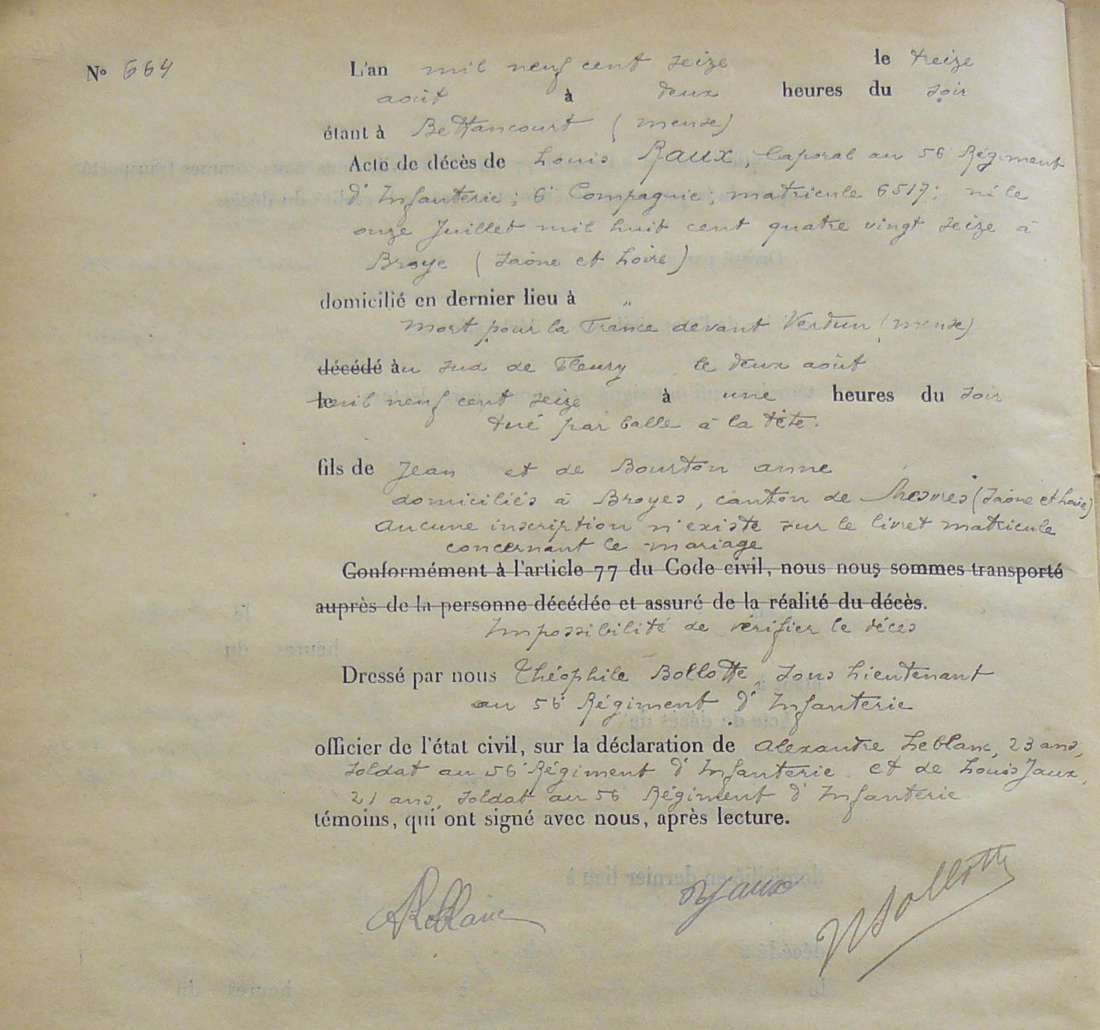 N° 664 L'an mil neuf cent seize le treize
août à deux heures du soir
étant à Bettancourt (Meuse)
Acte de décès de Louis RAUX, Caporal au 56 Régiment
d'Infanterie; 6e Compagnie; matricule 6517; né le
onze Juillet mil huit cent quatre vingt seize à
Broye (Saône et Loire)
domicilié en dernier lieu à "
Mort pour la France devant Verdun (Meuse)
décédé au sud de Fleury le deux août
le mil neuf cent seize à une heures du soir
tué par balle à la tête.
fils de Jean et de Bourton Anne
domiciliés à Broyes, canton de Mesvres (Saône et Loire)
Aucune inscription n'existe sur le livret matricule
concernant le mariage
Conformément à l'article 77 du Code civil, nous nous sommes transporté
auprès de la personne décédée et assuré de la réalité du décès.
Impossibilité de vérifier le décès
Dressé par nous Théophile Bollotte, Sous Lieutenant
au 56e Régiment d'Infanterie
officier de l'état civil, sur la déclaration de Alexandre Leblanc, 23 ans,
soldat au 56e Régiment d'Infanterie et de Louis Jaux,
21 ans, soldat au 56 Régiment d'Infanterie
témoins, qui ont signé avec nous, après lecture.